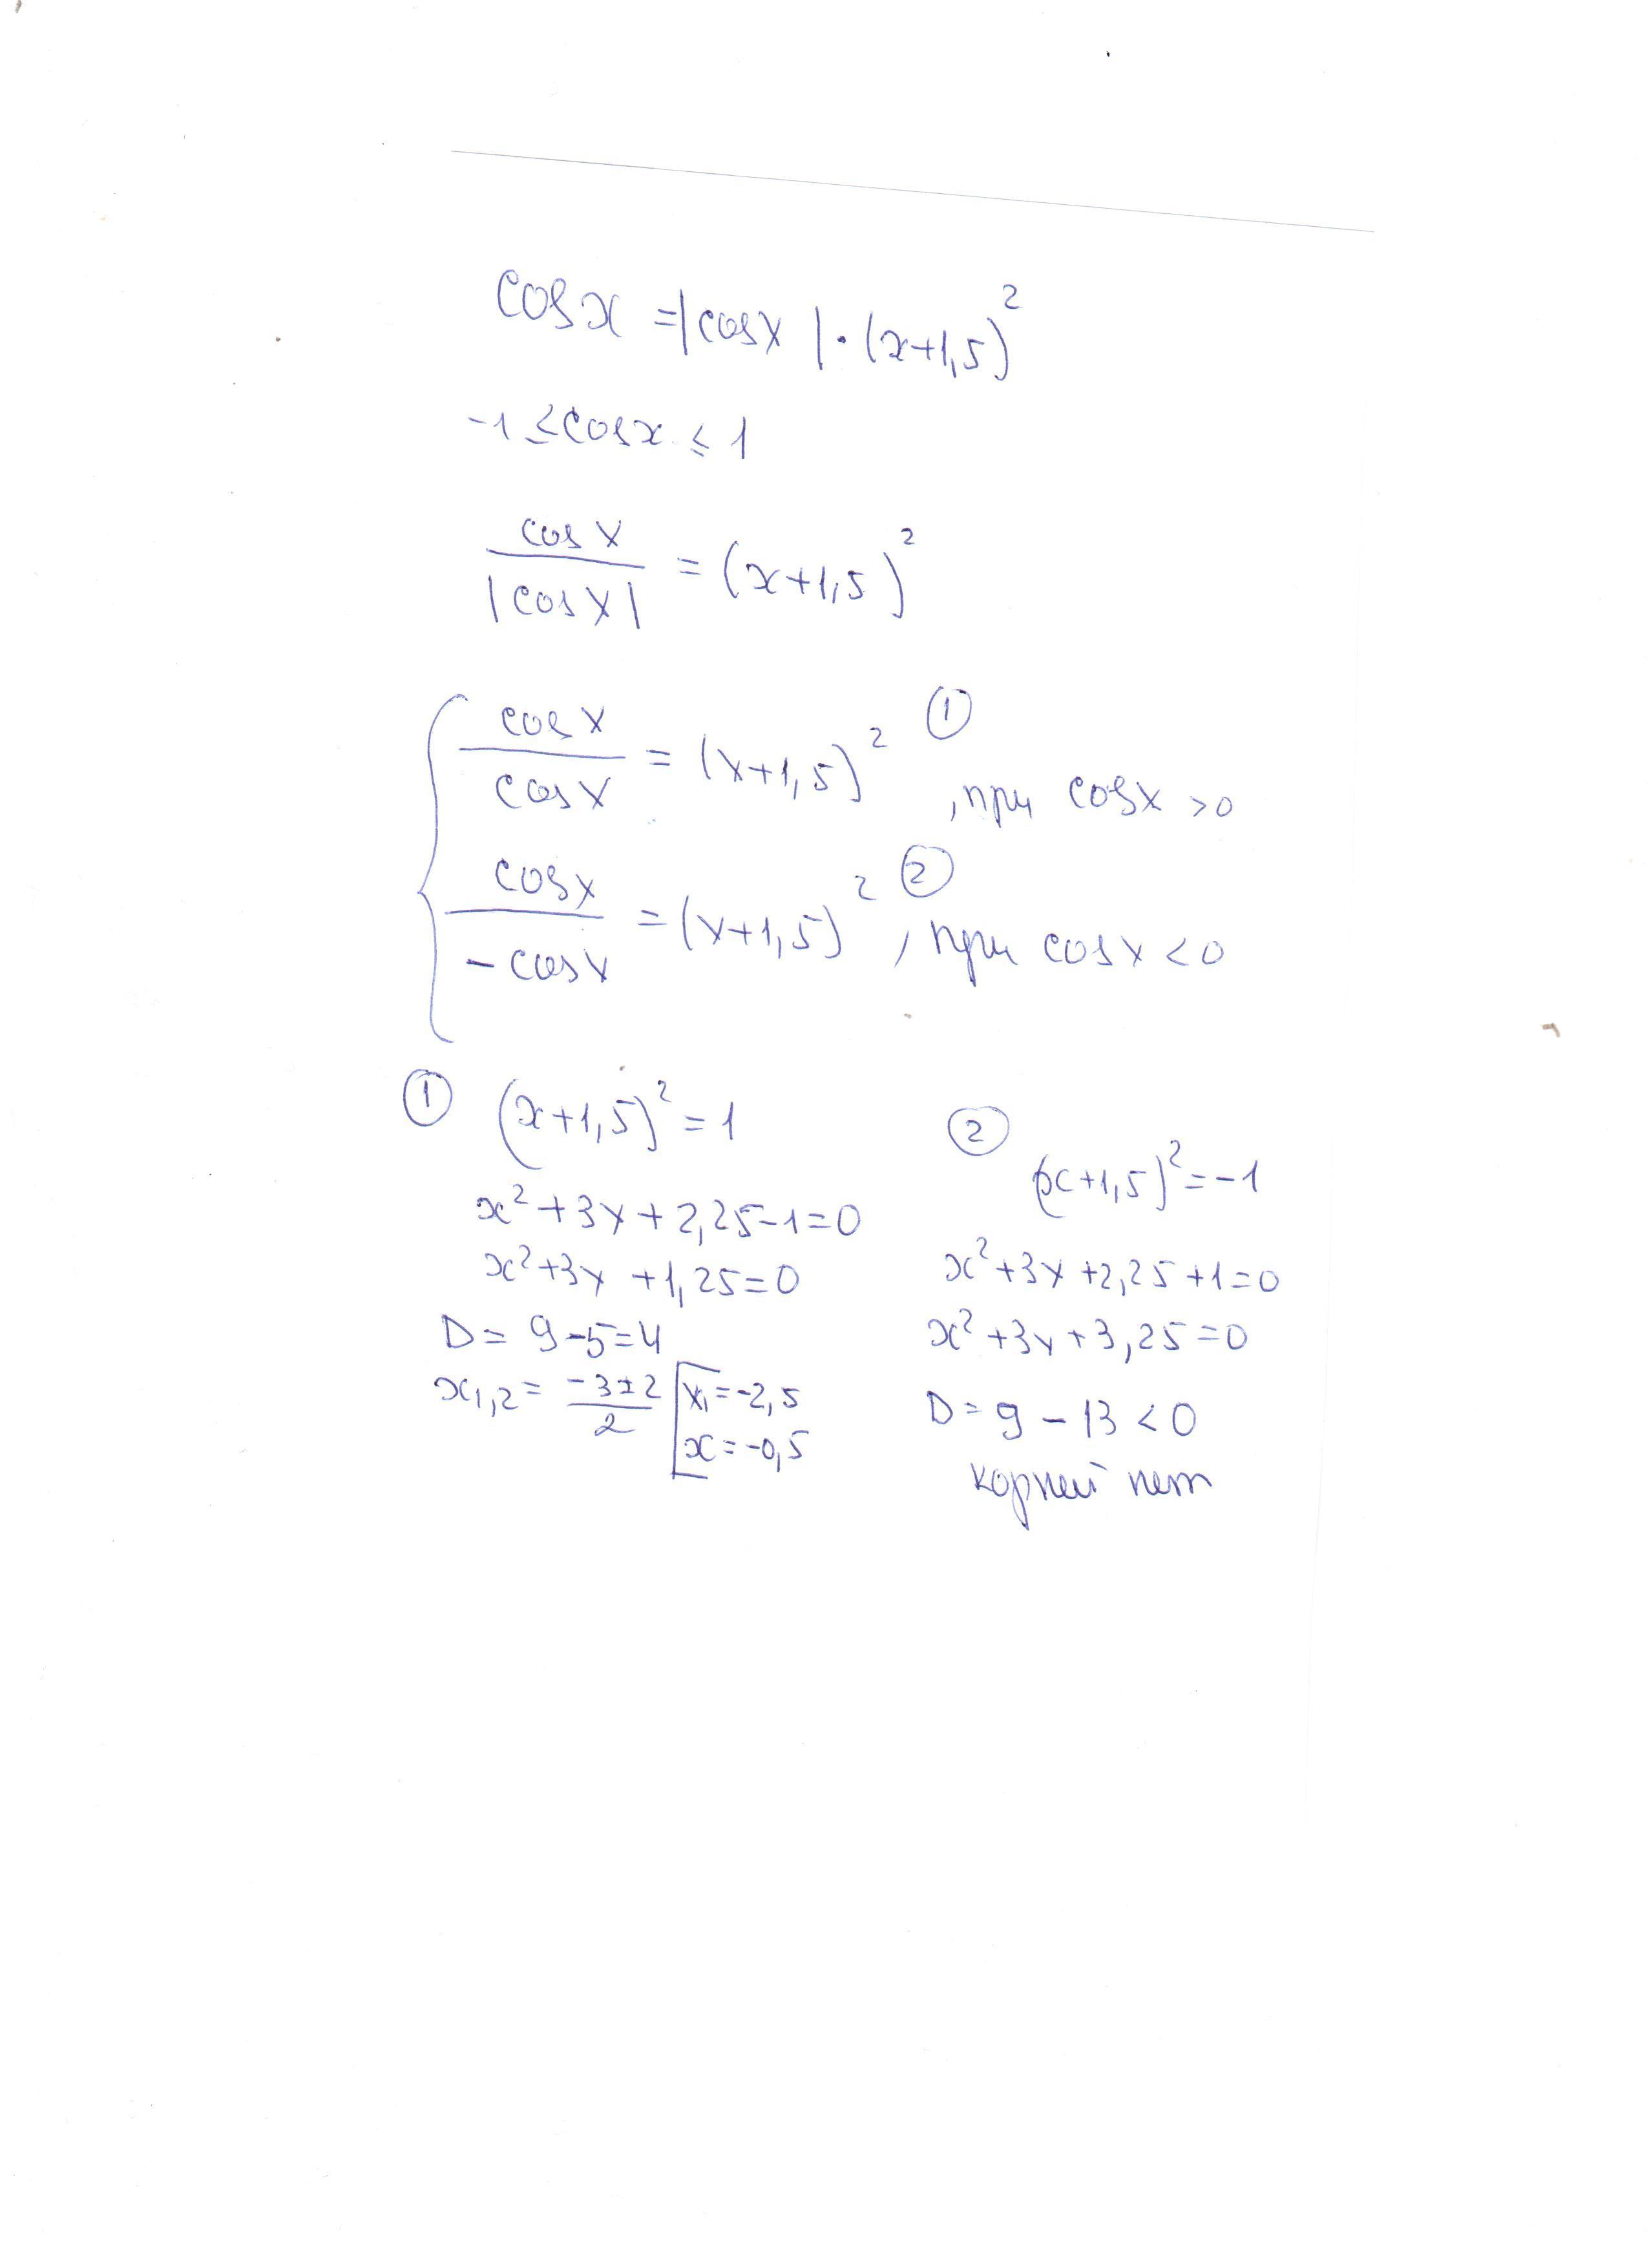 cosx = |cosx| · (x+1,5)²
-1 ≤ cosx ≤ 1
cosx / |cosx| = (x+1,5)²
{ cosx / cosx = (x+1,5)² ① , при cosx > 0
cosx / -cosx = (x+1,5)² ② , при cosx < 0
① (x+1,5)² = 1
x² + 3x + 2,25 - 1 = 0
x² + 3x + 1,25 = 0
D = 9 - 5 = 4
x₁,₂ = -3 ± 2 / 2 [ x₁ = -2,5
x = -0,5
② (x+1,5)² = -1
x² + 3x + 2,25 + 1 = 0
x² + 3x + 3,25 = 0
D = 9 - 13 < 0
корней нет